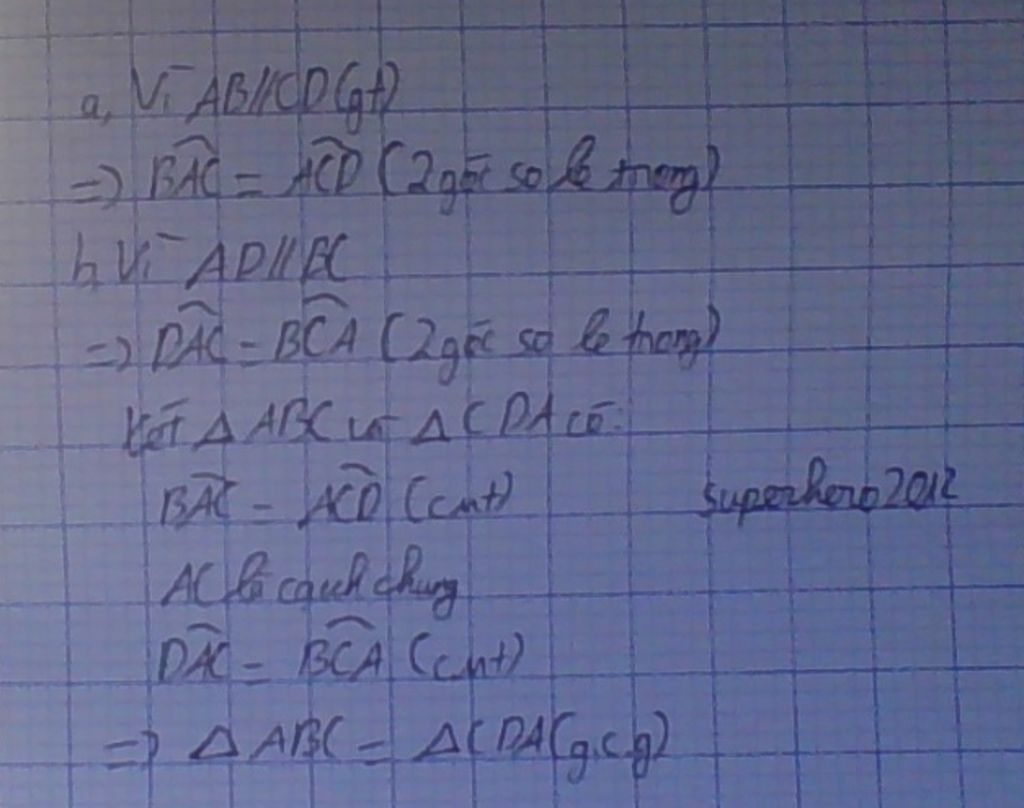 a, Vì AB//CD(gt)
=> \widehat{BAC} = \widehat{ACD} (2 góc so le trong)
b, Vì AD//BC
=> \widehat{DAC} = \widehat{BCA} (2 góc so le trong)
Xét Δ ABC và Δ CDA có:
\widehat{BAC} = \widehat{ACD} (cmt)
superhero2012
AC là cạnh chung
\widehat{DAC} = \widehat{BCA} (cmt)
=> Δ ABC = Δ CDA (g.c.g)